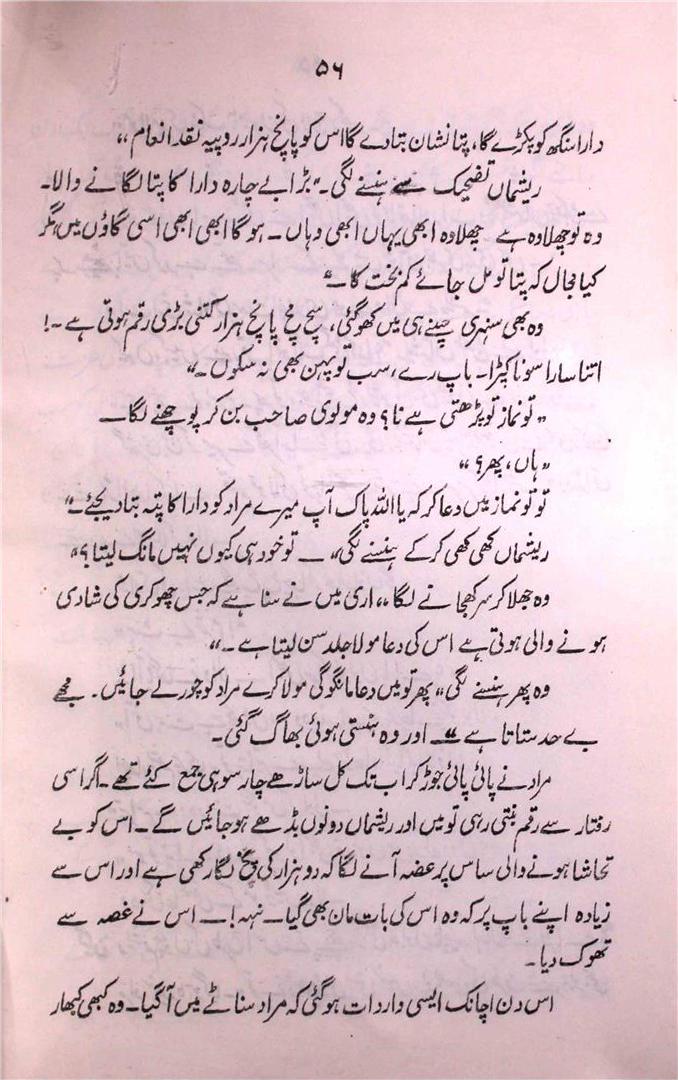 ۵۶
دارا سنگھ کو پکڑے گا، پتا نشان بتا دے گا اس کو پانچ ہزار روپیہ نقد انعام ،،
ریشماں تضحیک سے ہنسنے لگی۔ ”بڑا بے چارہ دارا کا پتا لگانے والا۔
وہ تو چھلاوہ ہے چھلاوہ ابھی یہاں ابھی وہاں۔ ہو گا ابھی ابھی اسی گاؤں میں مگر
کیا مجال کہ پتا تو مل جائے کم بخت کا۔“
وہ بھی سنہری سپنے ہی میں کھو گئی، سچ مچ پانچ ہزار کتنی بڑی رقم ہوتی ہے۔!
اتنا سارا سونا کپڑا۔ باپ رے، سب تو پہن بھی نہ سکوں۔“
”تو نماز تو پڑھتی ہے نا؟ وہ مولوی صاحب بن کر پوچھنے لگا۔
”ہاں، پھر؟“
تو تو نماز میں دعا کر کہ یا اللہ پاک آپ میرے مراد کو دارا کا پتہ بتا دیجئے۔“
ریشماں کھی کھی کر کے ہنسنے لگی“ — تو خود ہی کیوں نہیں مانگ لیتا؟“
وہ جھلا کر سر کھجانے لگا ،، اری میں نے سنا ہے کہ جس چھوکری کی شادی
ہونے والی ہوتی ہے اس کی دعا مولا جلد سن لیتا ہے۔“
وہ پھر ہنسنے لگی” پھر تو میں دعا مانگوگی مولا کرے مراد کو چور لے جائیں۔ مجھے
بے حد ستاتا ہے“ اور وہ ہنستی ہوئی بھاگ گئی۔
مراد نے پائی پائی جوڑ کر اب تک کل ساڑھے چار سو ہی جمع کئے تھے۔ اگر اسی
رفتار سے رقم بنتی رہی تو میں اور ریشماں دونوں بڈھے ہو جائیں گے۔ اس کو بے
تحاشا ہونے والی ساس پر غصہ آنے لگا کہ دو ہزار کی پخ لگا رکھی ہے اور اس سے
زیادہ اپنے باپ پر کہ وہ اس کی بات مان بھی گیا۔ نہہ!۔ اس نے غصہ سے
تھوک دیا۔
اس دن اچانک ایسی واردات ہو گئی کہ مراد سناٹے میں آ گیا۔ وہ کبھی کبھار